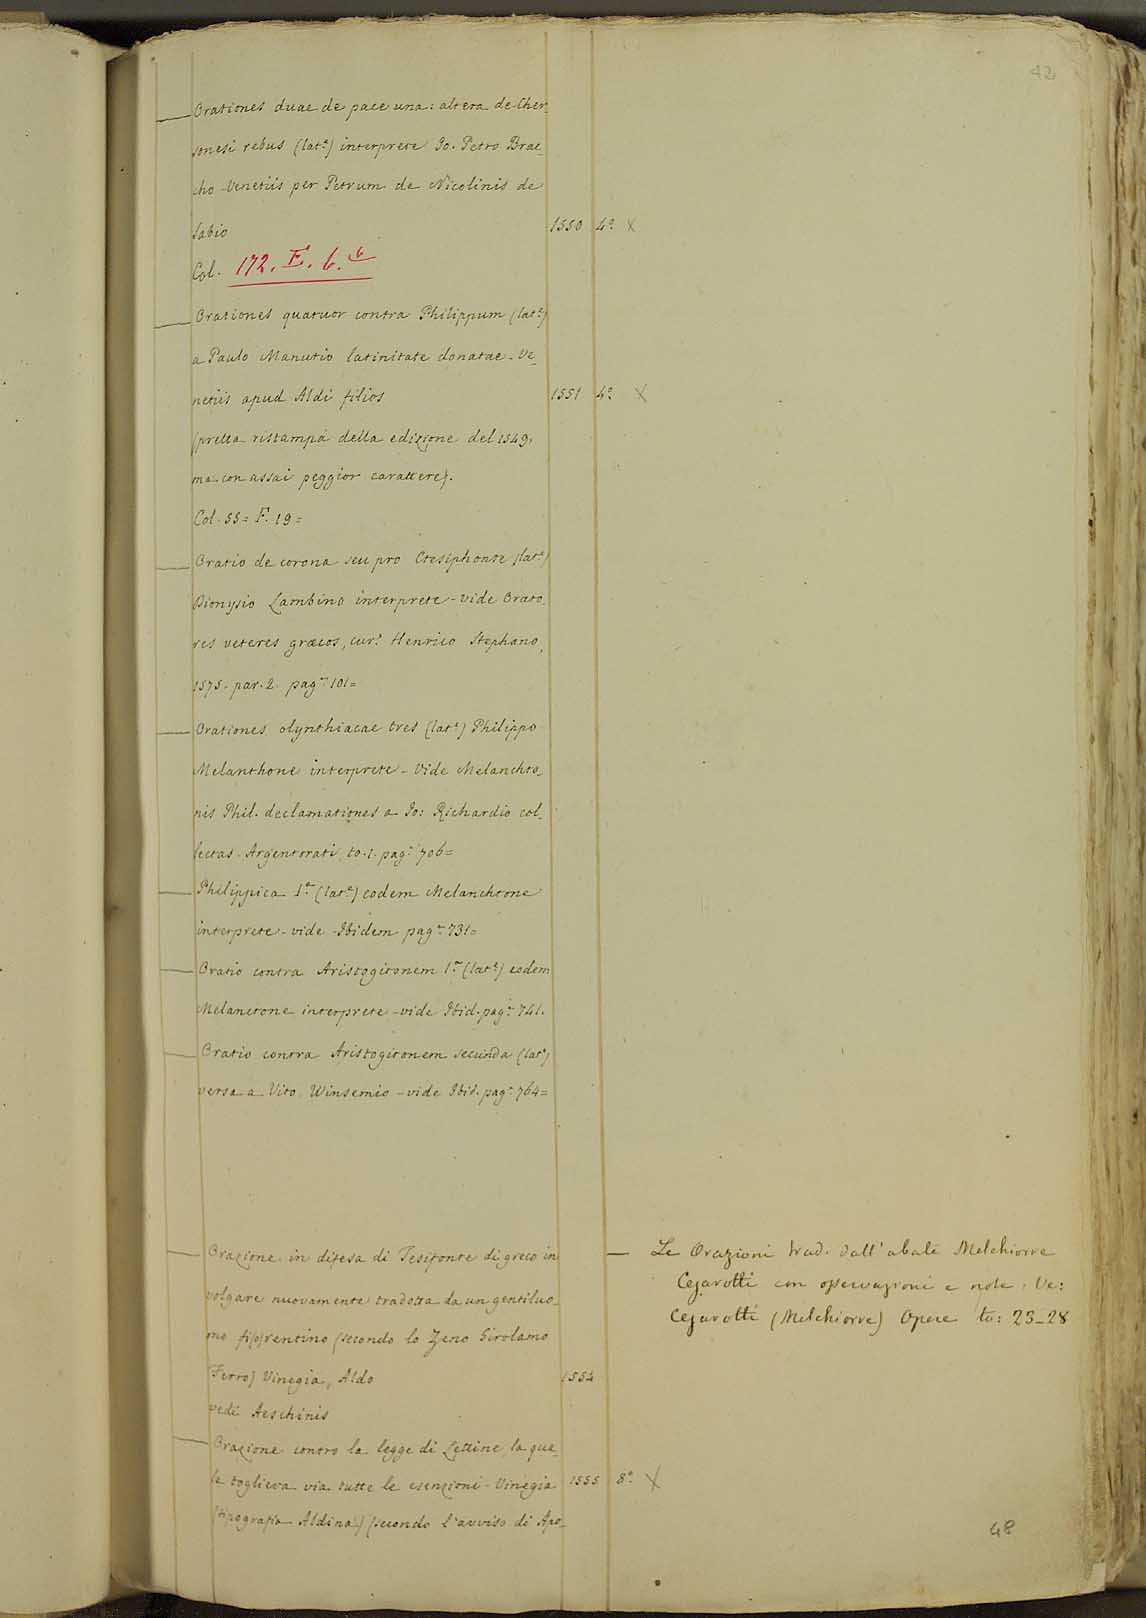 42
Orationes duae de pace una: altera de Cher_
sonesi rebus (lat.e) interprete Io. Petro Brae_
cho - Venetiis per Petrum de Nicolinis de
Sabio 1550 4.o X
Col. 172. E. 6. 6
Orationes quatuor contra Philippum (lat.e)
a Paulo Manutio latinitate donatae - Ve_
netiis apud Aldi filios 1551 4.o X
(pretta ristampa della edizione del 1549,
ma con assai peggior carattere).
Col. 55 = F. 19 =
Oratio de corona seu pro Ctesiphonte (lat.e)
Dionysio Lambino interprete - vide Orato_
res veteres græcos, cur.e Henrico Stephano,
1575. par. 2. pag.a 101 =
Orationes olynthiacae tres (lat.e) Philippo
Melanthone interprete - Vide Melanchto_
nis Phil. declamationes a Io: Richardio col_
lectas - Argentorati, to. 1. pag.a 706 =
Philippica 1.a (lat.e) eodem Melanchtone
interprete - vide Ibidem pag.a 731 =
Oratio contra Aristogitonem 1.a (lat.e) eodem
Melanctone interprete - vide Ibid. pag.a 741.
Oratio contra Aristogitonem secunda (lat.e)
versa a Vito Winsemio - vide Ibid. pag.a 764 =
Orazione in difesa di Tesifonte di greco in
volgare nuovamente tradotta da un gentiluo_
mo fi(o)rentino (secondo lo Zeno Girolamo
Ferro) Vinegia, Aldo 1554
vedi Aeschinis
Orazione contro la legge di Lettine, la qua_
le toglieva via tutte le esenzioni - Vinegia 1555 8.o X
(tipografia Aldina) (secondo l'avviso di Apo_
— Le Orazioni trad. dall'abate Melchiorre
Cesarotti con osservazioni e note. Ve:
Cesarotti (Melchiorre) Opere to: 23_28
48